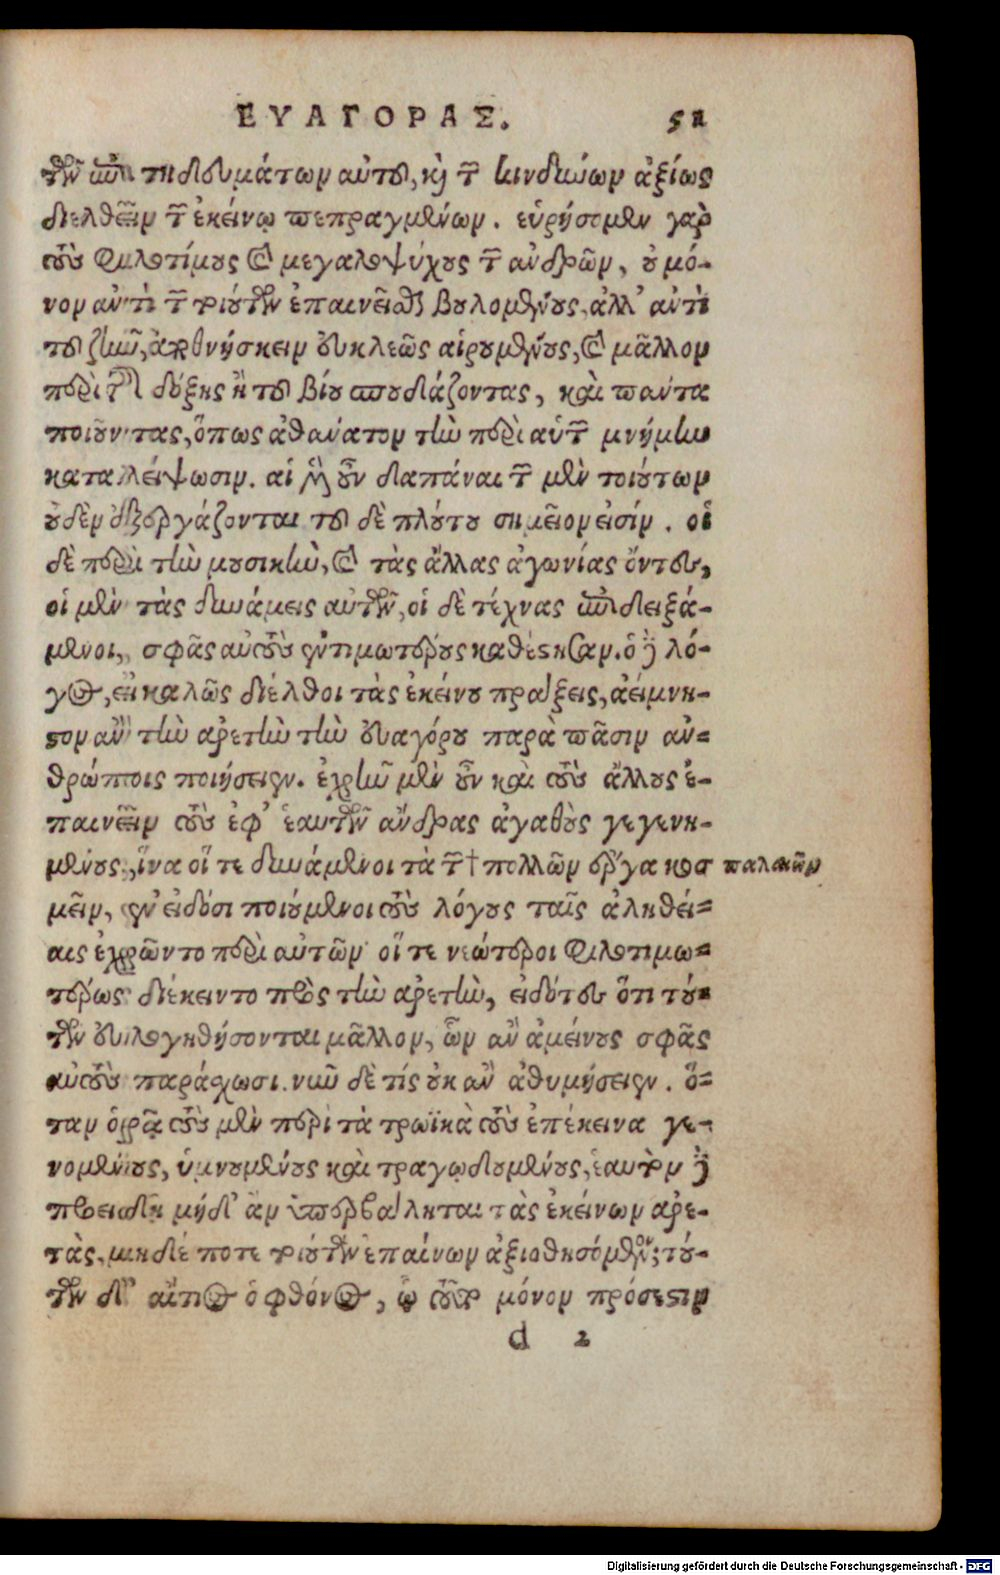 ΕΥΑΓΟΡΑΣ. 51
τῶν ἐπιτηδευμάτων αὐτοῦ, καὶ τῶν κινδύνων ἀξίως
διελθεῖν τῶν ἐκείνῳ πεπραγμένων. εὑρήσομεν γὰρ
τοὺς φιλοτίμους καὶ μεγαλοψύχους τῶν ἀνδρῶν, οὐ μό-
νον ἀντὶ τῶν τοιούτων ἐπαινεῖσθαι βουλομένους, ἀλλ' ἀντὶ
τοῦ ζῆν, ἀποθνήσκειν εὐκλεῶς αἱρουμένους, καὶ μᾶλλον
περὶ τῆς δόξης ἢ τοῦ βίου σπουδάζοντας, καὶ πάντα
ποιοῦντας, ὅπως ἀθάνατον τὴν περὶ αὑτῶν μνήμην
καταλείψωσιν. αἱ μὲν οὖν δαπάναι τῶν μὲν τοιούτων
οὐδὲν ἐξεργάζονται τοῦ δὲ πλούτου σημεῖον εἰσίν. οἱ
δὲ περὶ τὴν μουσικὴν, καὶ τὰς ἄλλας ἀγωνίας ὄντες,
οἱ μὲν τὰς δυνάμεις αὐτῶν, οἱ δὲ τέχνας ἐπιδειξά-
μενοι, σφᾶς αὐτοὺς ἐντιμωτέρους καθέστησαν. ὁ δὲ λό-
γος, εἰ καλῶς διέλθοι τὰς ἐκείνου πράξεις, ἀείμνη-
στον ἂν τὴν ἀρετὴν τὴν Εὐαγόρου παρὰ πᾶσιν ἀν-
θρώποις ποιήσειεν. ἐχρῆν μὲν οὖν καὶ τοὺς ἄλλους ἐ-
παινεῖν τοὺς ἐφ' ἑαυτῶν ἄνδρας ἀγαθοὺς γεγενη-
μένους, ἵνα οἵ τε δυνάμενοι τὰ τῶν † πολλῶν ἔργα κοσ παλαιῶν
μεῖν, ἐν εἰδόσι ποιούμενοι τοὺς λόγους ταῖς ἀληθεί-
αις ἐχρῶντο περὶ αὐτῶν οἵ τε νεώτεροι φιλοτιμω-
τέρως διέκειντο πρὸς τὴν ἀρετὴν, εἰδότες ὅτι τού-
των εὐλογηθήσονται μᾶλλον, ὧν ἂν ἀμείνους σφᾶς
αὐτοὺς παράσχωσι. νῦν δὲ τίς οὐκ ἂν ἀθυμήσειεν. ὅ-
ταν ὁρᾷ τοὺς μὲν περὶ τὰ τρωϊκὰ τοὺς ἐπέκεινα γε-
νομένους, ὑμνουμένους καὶ τραγῳδουμένους, ἑαυτὸν δὲ
προειδῇ μήδ' ἂν ὑπερβάληται τὰς ἐκείνων ἀρε-
τὰς, μηδέ ποτε τοιούτων ἐπαίνων ἀξιωθησόμενον; τού-
των δ' αἴτιος ὁ φθόνος, ᾧ τοῦτο μόνον πρόσεστιν
d 2
Digitalisierung gefördert durch die Deutsche Forschungsgemeinschaft - DFG